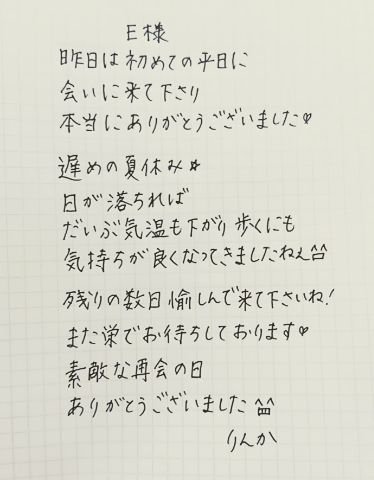 E様
昨日は初めての平日に
会いに来て下さり
本当にありがとうございました♡
遅めの夏休み☆
日が落ちれば
だいぶ気温も下がり歩くにも
気持ちが良くなってきましたねぇ^^
残りの数日愉しんで来て下さいね!
また栄でお待ちしております♡
素敵な再会の日
ありがとうございました^^
りんか